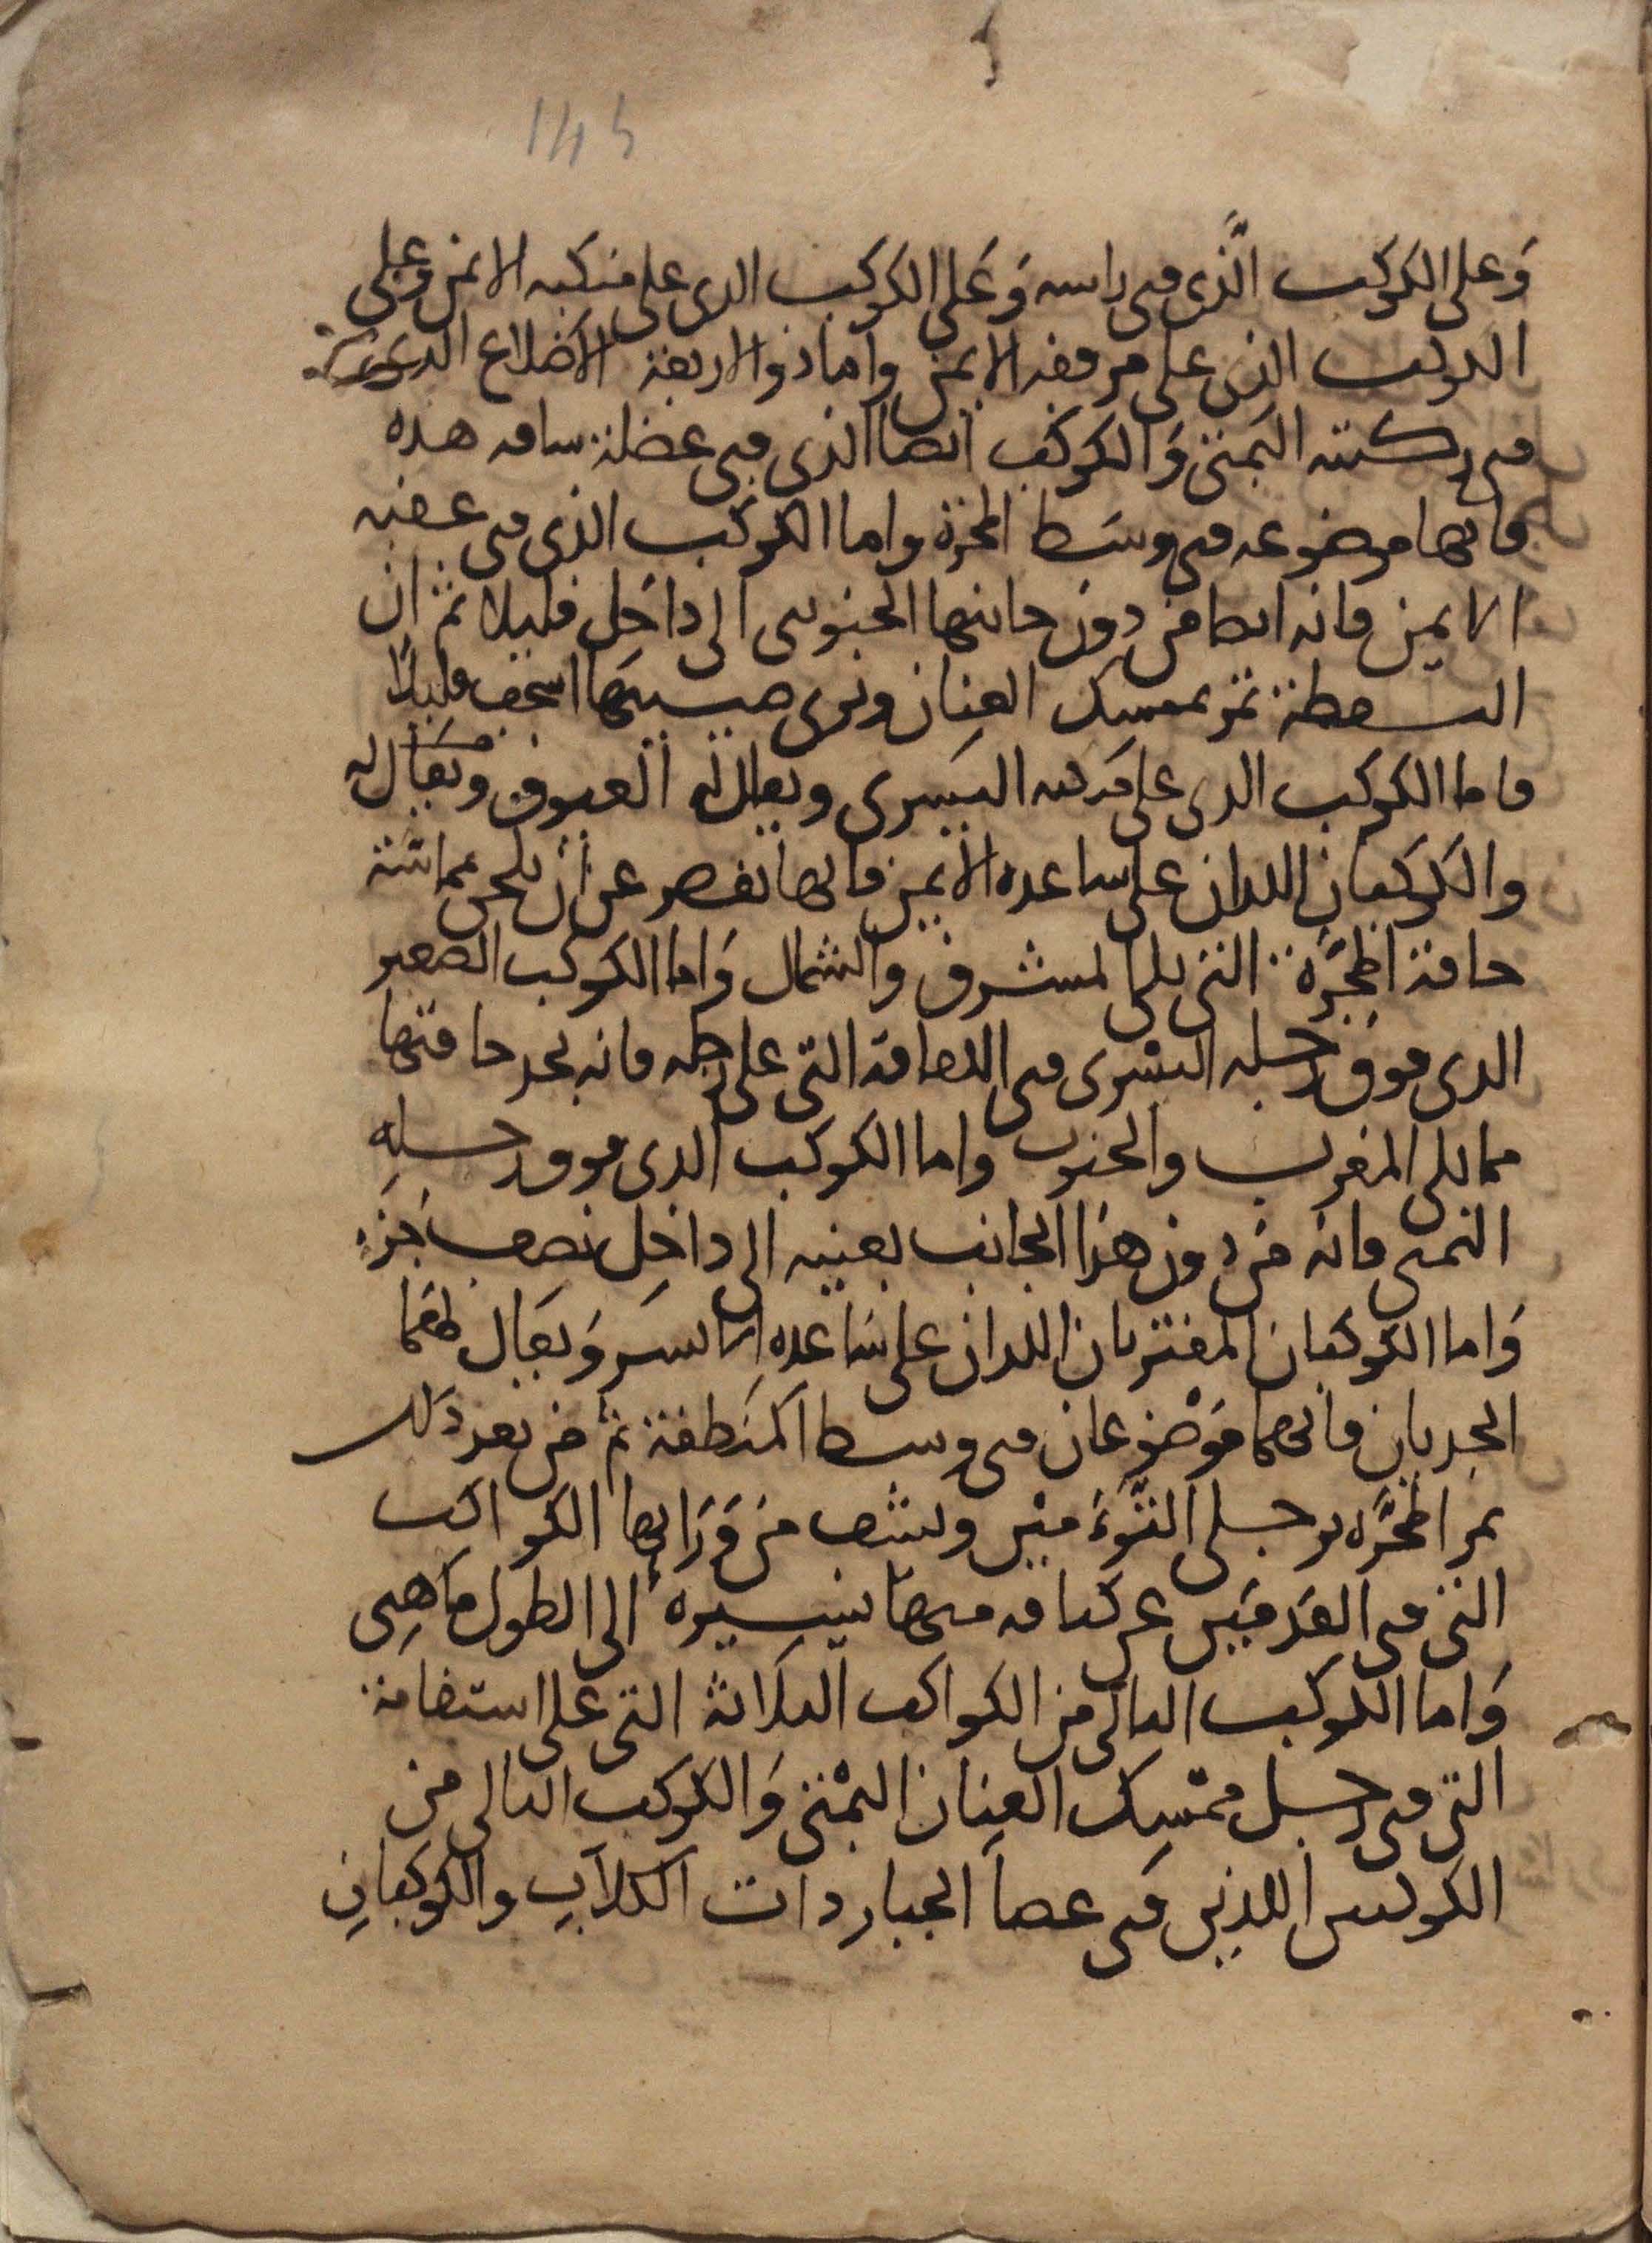 145
وَعلى الكوكب الَّذى فى راسه وَعَلى الكوكب الدى على منكبه الايمن وعلى
الكوكب الذى على مرفقه الايمن واما ذو الاربعة الاضلاع الدى
فى ركبته اليمنى وَالكوكب ايضا الذى فى عضلة ساقه هذه
فانها موضوعه فى وسَط المجرة واما الكوكب الذى فى عقبه
الايمن فانه ايضا من دون حافتها الجنوبى الى داخِل قليلا ثم ان
المنطقة تمر بممسِك العِنان وترى اسخف قليلًا
فاما الكوكب الدى على اليسرى ويقال له العيوق ويُقال له
والكوكبان اللدان على ساعده الايمن فانها تقصر عن ان تلحق مماسّة
حافة المجرّة التى تلى المشرق والشمال وَاما الكوكب الصغير
الدى فوق رجله اليسْرى فى اللفافة التى على رجله فانه يحد حافتها
مما يلى المغرب والجنوب واما الكوكب الدى فوق رجله
اليمنى فانه من دون هذا الجانب بعينه الى داخِل نصف جزءٍ
وَاما الكوكبان المقتربان اللدان على سَاعده الايسر وَيقال لهما
الجديان فانهما مَوْضوعان فى وسط المنطقة ثم من بعد ذلك
تمر المجرَّه برجلى التَّوءَمَيْن ويشف من وَرَائها الكواكب
التى فى القدمَين عن كثافه فيها يَسِيره الى الطول ما هِى
وَاما الكوكب التالى من الكواكب الثلاثة التى على استقامة
التى فى رجل ممْسِك العِنان اليمْنى وَالكوكب التالى من
الكوكبين اللذين فى عصا الجبار ذات الكلاَبِ والكوكبانِ